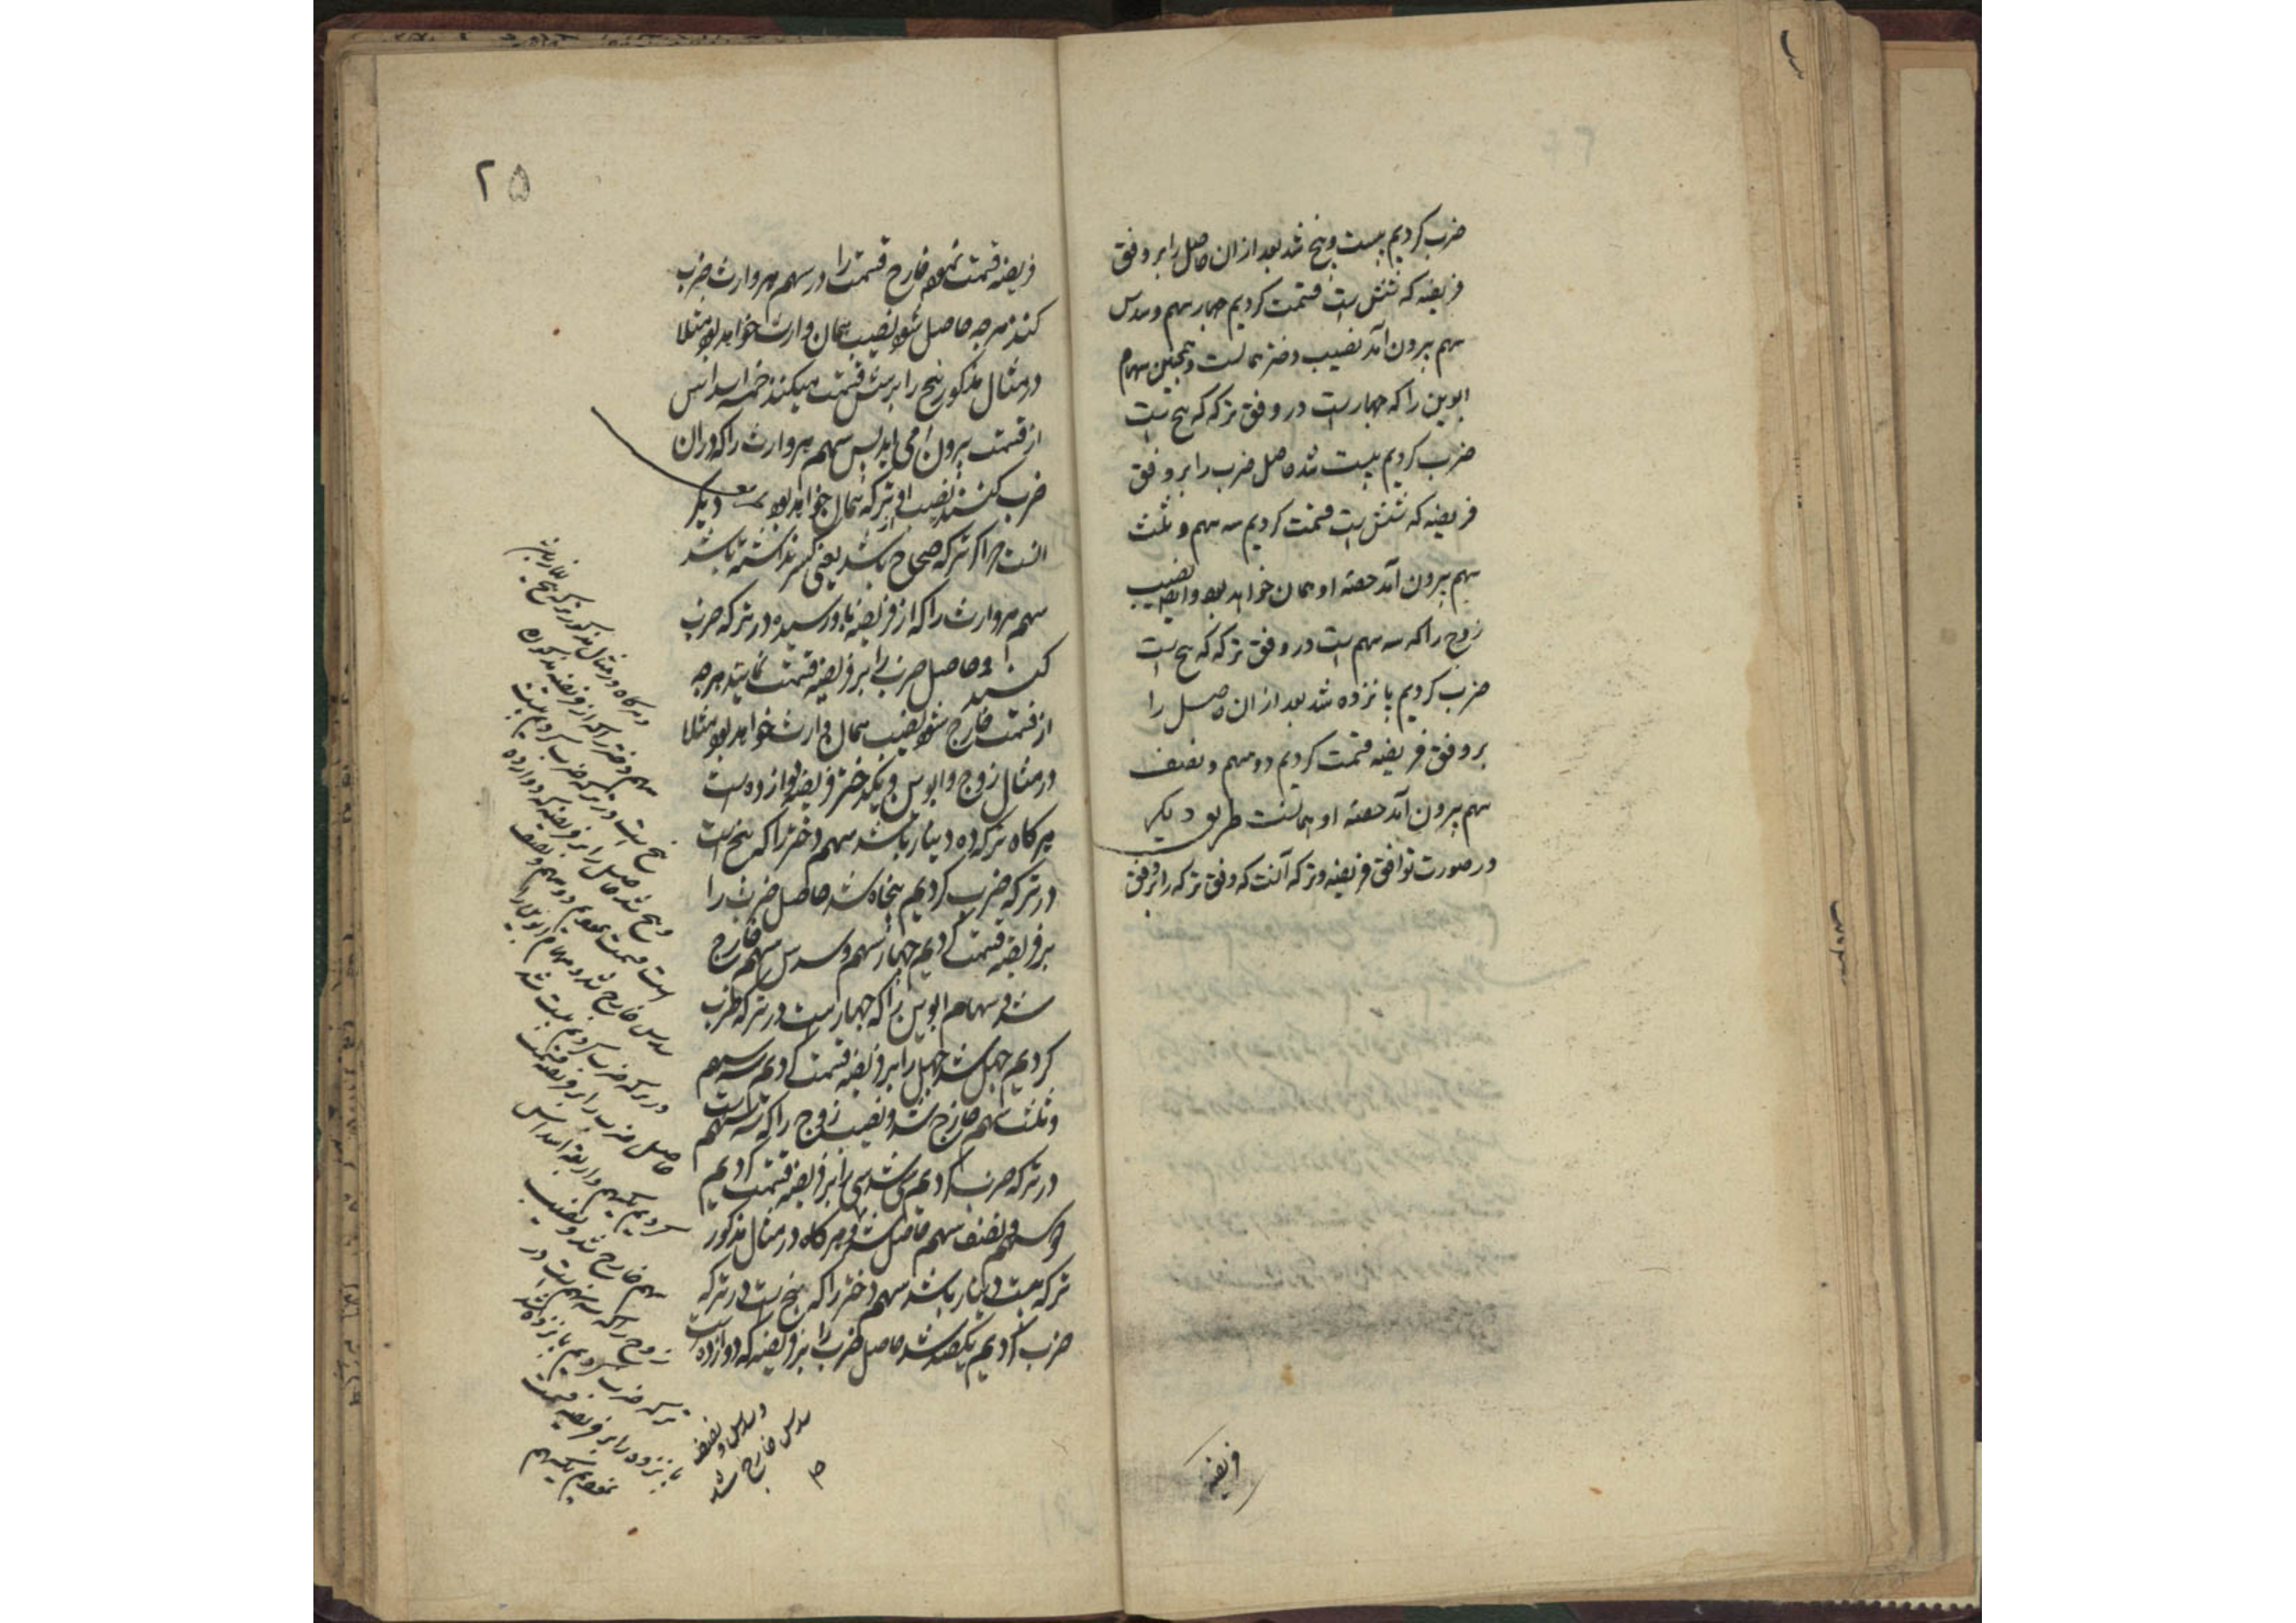 ضرب کردیم بیست و پنج شد بعد از ان حاصل را بر وفق
فریضه که شش است قسمت کردیم چهار سهم و سدس
سهم بیرون آمد نصیب دختر همانست و همچنین سهام
ابوین را که چهار است در وفق ترکه که پنج است
ضرب کردیم بیست شد حاصل ضرب را بر وفق
فریضه که شش است قسمت کردیم سه سهم و ثلث
سهم بیرون آمد حصه او همان خواهد بود و ایضا نصیب
زوج را که سه سهم است در وفق ترکه که پنج است
ضرب کردیم پانزده شد بعد از ان حاصل را
بر وفق فریضه قسمت کردیم دو سهم و نصف
سهم بیرون آمد حصه او همانست طریق دیگر
در صورت توافق فریضه و ترکه آنست که وفق ترکه را بر وفق
فریضه
۲۵
فریضه قسمت نموده خارج قسمت را در سهم هر وارث ضرب
کنند هر چه حاصل شود نصیب همان وارث خواهد بود مثلا
در مثال مذکور پنج را بر شش قسمت میکنند خمسه اسداس
از قسمت بیرون می آید پس سهم هر وارث را که در ان
ضرب کنند نصیب او از ترکه همان خواهد بود دیگر
انست که اگر ترکه صحاح باشد یعنی کسر نداشته باشد
سهم هر وارث را که از فریضه باو رسیده در ترکه ضرب
کنند و حاصل ضرب را بر فریضه قسمت نمایند هر چه
از قسمت خارج شود نصیب همان وارث خواهد بود مثلا
در مثال زوج و ابوین و یکدختر فریضه دوازده است
هر کاه ترکه ده دینار باشد سهم دختر را که پنج است
در ترکه ضرب کردیم پنجاه شد حاصل ضرب را
بر فریضه قسمت کردیم چهار سهم و سدس سهم خارج
شد و سهام ابوین را که چهار است در ترکه ضرب
کردیم چهل شد چهل را بر فریضه قسمت کردیم سه سهم
و ثلث سهم خارج شد و نصیب زوج را که سه سهم است
در ترکه ضرب کردیم سی شد سی را بر فریضه قسمت کردیم
دو سهم و نصف سهم حاصل شد و هر کاه در مثال مذکور
ترکه بیست دینار باشد سهم دختر را که پنج است در ترکه
ضرب کردیم یکصد شد حاصل ضرب را بر فریضه که دوازده است
و هر کاه در مثال مذکور ترکه پنج دینار باشد
سهم دختر را که از فریضه مذکوره
پنج است در ترکه ضرب کردیم بیست
و پنج شد حاصل را بر فریضه که دوازده
است قسمت نمودیم دو سهم و نصف
سدس خارج شد و سهام ابوین را
در ترکه ضرب کردیم بیست شد
حاصل ضرب را بر فریضه قسمت
کردیم یکسهم و اربعه اسداس
سهم خارج شد و نصیب
زوج را که سه سهم است در
ترکه ضرب کردیم پانزده شد
پانزده را بر فریضه قسمت
نمودیم یکسهم
و سدس و نصف
سدس خارج شد